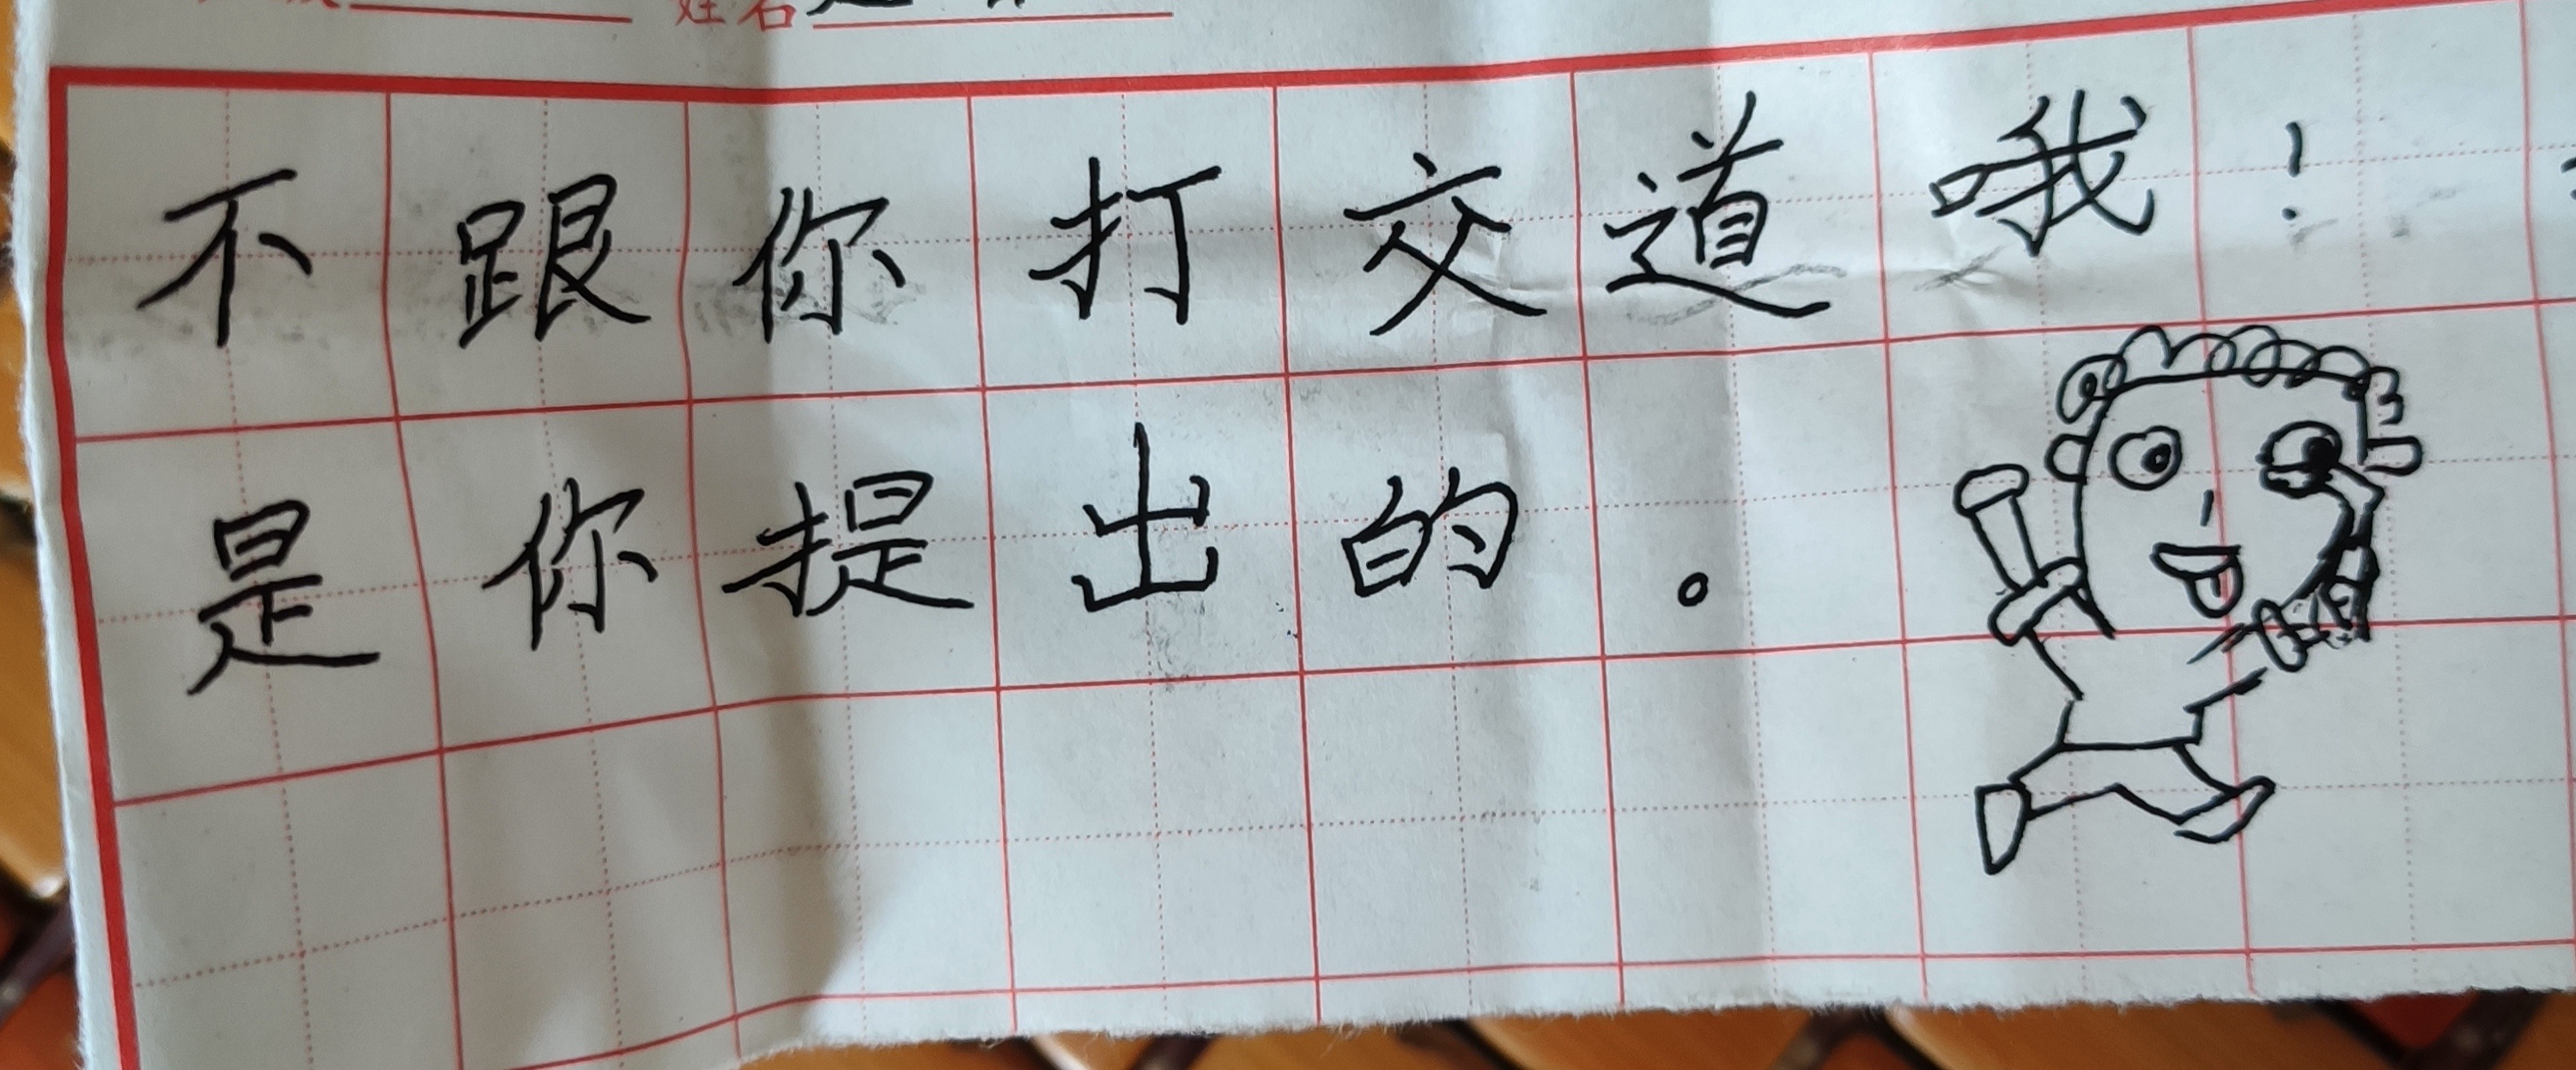 姓名
不跟你打交道哦！
是你提出的。